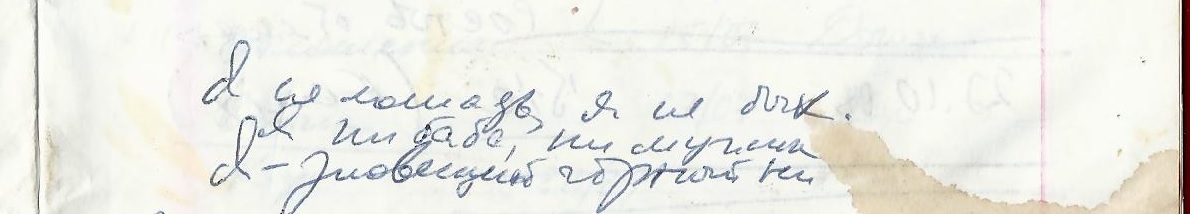 Я не лошадь, я не бык.
Я ни баба, ни мужик
Я - зловещий чёрный